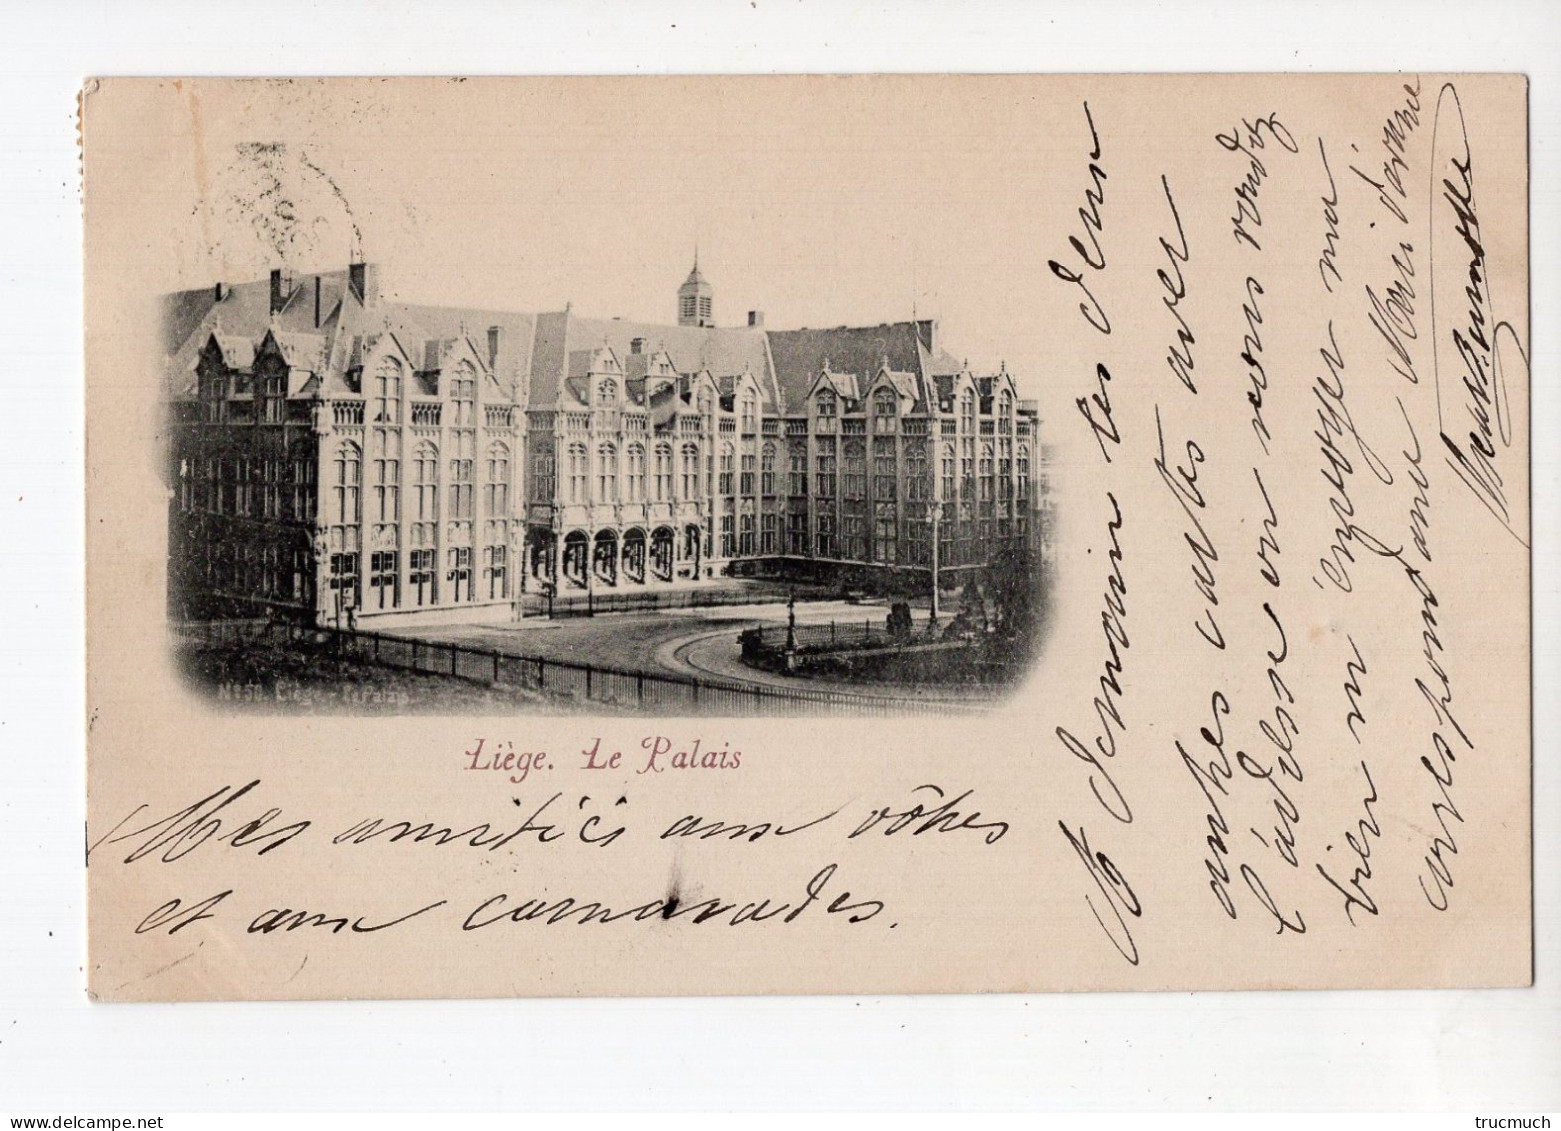 Nº 50. Liège - Le Palais
Liège. Le Palais
Mes amitiés aux vôtres
et aux camarades.
A demain les deux
autres cartes avec
l'adresse où vous voudrez
bien m'envoyer ma
correspondance Merci d'avance
delcampe.net
trucmuch